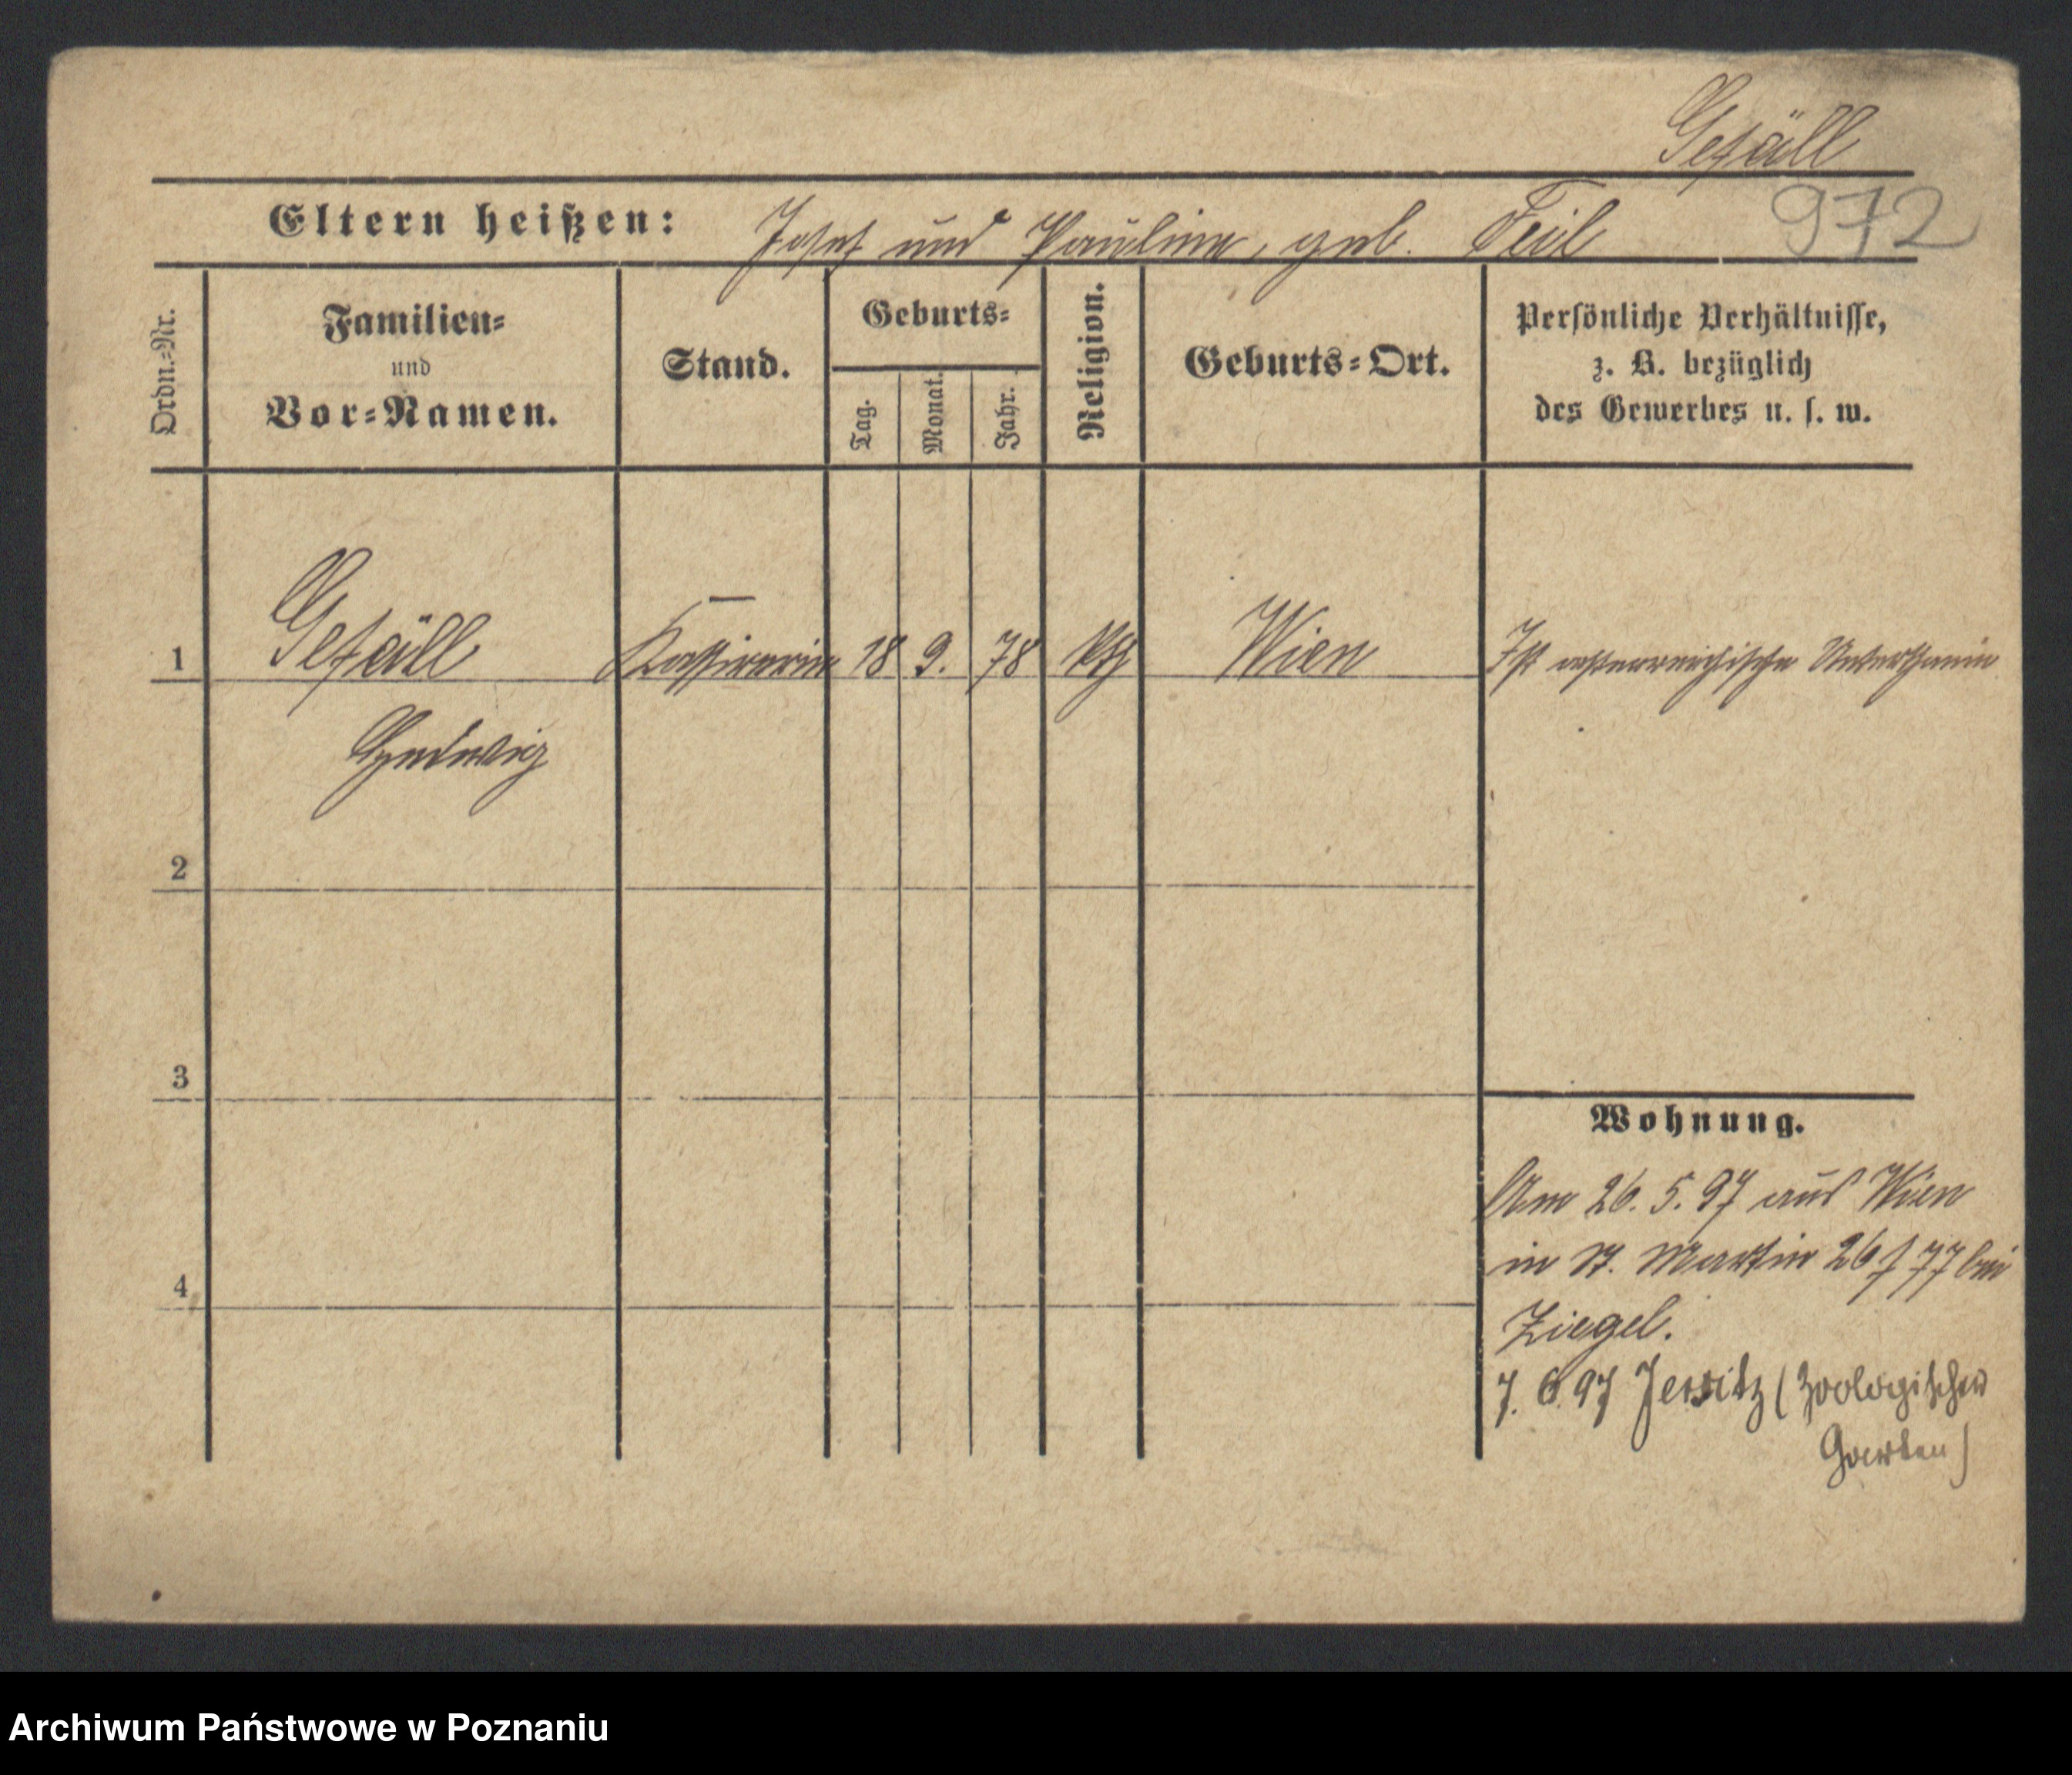 Gefäll
Eltern heißen: Josef und Pauline, geb. Feil
972
Ordn.-Nr.
Familien-
und
Vor-Namen.
Stand.
Geburts-
Tag.
Monat.
Jahr.
Religion.
Geburts-Ort.
Persönliche Verhältnisse,
z. B. bezüglich
des Gewerbes u. s. w.
1 Gefäll Kassirerin 18 9. 78 kth Wien Ist oesterreichische Unterthanin
Hedwig
2
3
Wohnung.
Am 26. 5. 97 aus Wien
in St. Martin 26 / 77 bei
4
Ziegel.
7. 6. 97 Jersitz (Zoologischer
Garten)
Archiwum Państwowe w Poznaniu